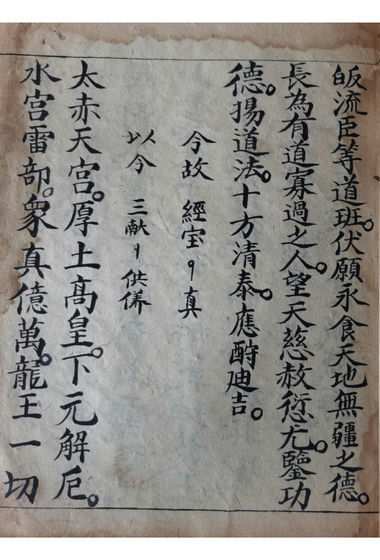 皈流臣等道班。伏願永食天地無疆之德。
長為有道寡過之人。望天慈赦愆尤。鑒功
德。揚道法。十方清泰。應酧迪吉。
今故 經宝〻真
以今 三献〻供併
太赤天宫。厚土高皇。下元解厄。
水宫雷部。衆真億萬。龍王一切